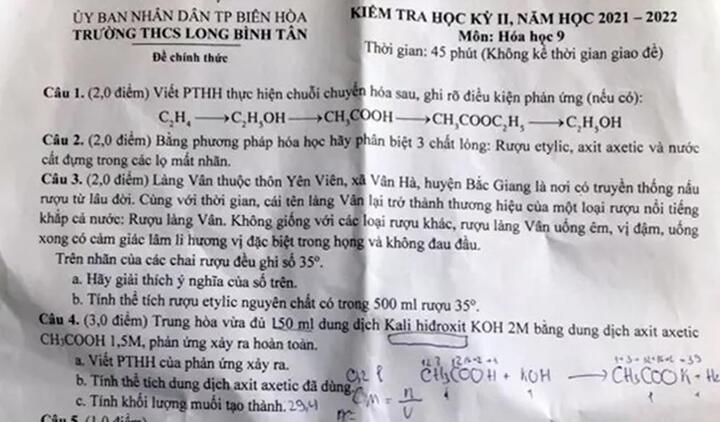 ỦY BAN NHÂN DÂN TP BIÊN HÒA
TRƯỜNG THCS LONG BÌNH TÂN
Đề chính thức
KIỂM TRA HỌC KỲ II, NĂM HỌC 2021 – 2022
Môn: Hóa học 9
Thời gian: 45 phút (Không kể thời gian giao đề)
Câu 1. (2,0 điểm) Viết PTHH thực hiện chuỗi chuyển hóa sau, ghi rõ điều kiện phản ứng (nếu có):
C₂H₄ ⟶ C₂H₅OH ⟶ CH₃COOH ⟶ CH₃COOC₂H₅ ⟶ C₂H₅OH
Câu 2. (2,0 điểm) Bằng phương pháp hóa học hãy phân biệt 3 chất lỏng: Rượu etylic, axit axetic và nước
cất đựng trong các lọ mất nhãn.
Câu 3. (2,0 điểm) Làng Vân thuộc thôn Yên Viên, xã Vân Hà, huyện Bắc Giang là nơi có truyền thống nấu
rượu từ lâu đời. Cùng với thời gian, cái tên làng Vân lại trở thành thương hiệu của một loại rượu nổi tiếng
khắp cả nước: Rượu làng Vân. Không giống với các loại rượu khác, rượu làng Vân uống êm, vị đậm, uống
xong có cảm giác lâm li hương vị đặc biệt trong họng và không đau đầu.
Trên nhãn của các chai rượu đều ghi số 35°.
a. Hãy giải thích ý nghĩa của số trên.
b. Tính thể tích rượu etylic nguyên chất có trong 500 ml rượu 35°.
Câu 4. (3,0 điểm) Trung hòa vừa đủ 150 ml dung dịch Kali hiđroxit KOH 2M bằng dung dịch axit axetic
CH₃COOH 1,5M, phản ứng xảy ra hoàn toàn.
a. Viết PTHH của phản ứng xảy ra.
CH₃COOH + KOH ⟶ CH₃COOK + H₂
b. Tính thể tích dung dịch axit axetic đã dùng.
CM = n/V
c. Tính khối lượng muối tạo thành. 29,4
Câu 5. (1,0 điểm)